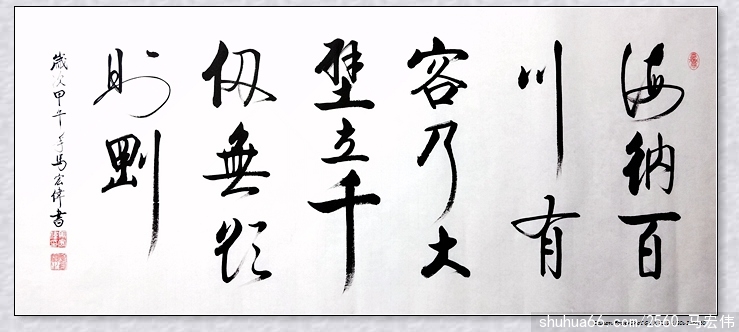 海納百
川有
容乃大
壁立千
仞無欲
則剛
歲次甲午年馬宏偉書
shuhua66.com/2560 马宏伟